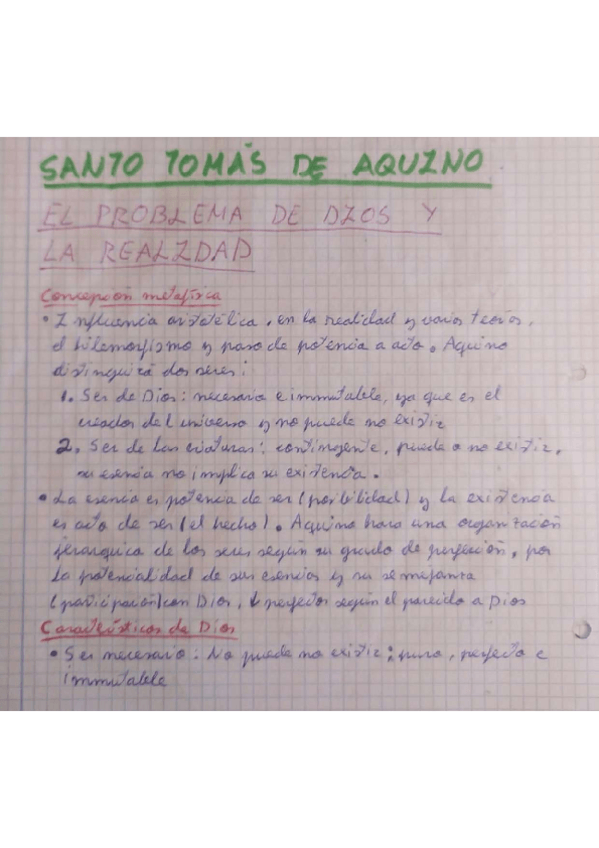 SANTO TOMÁS DE AQUINO
EL PROBLEMA DE DIOS Y
LA REALIDAD
Concepción metafísica
• Influencia aristotélica, en la realidad y varias teorías,
el hilemorfismo y paso de potencia a acto. Aquino
distinguirá dos seres:
1. Ser de Dios: necesario e immutable, ya que es el
creador del universo y no puede no existir
2. Ser de las criaturas: contingente, puede o no existir,
su esencia no implica su existencia.
• La esencia es potencia de ser (posibilidad) y la existencia
es acto de ser (el hecho). Aquino hara una organización
jerarquica de los seres según su grado de perfección, por
la potencialidad de sus esencias y su semejanza
(participación) con Dios, perfectos según el parecido a Dios
Características de Dios
• Ser necesario: No puede no existir; puro, perfecto e
immutable